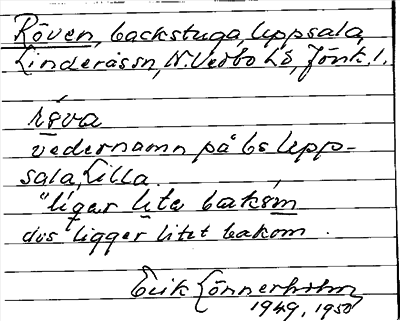 Röven, backstuga, Uppsala,
Linderåssn, N. Vedbo hd, Jönk. l.
röva
vedernamn på bs Upp-
sala, Lilla.
"ligar lite bakøm
dvs ligger litet bakom.
Erik Lönnerholm
1949, 1950